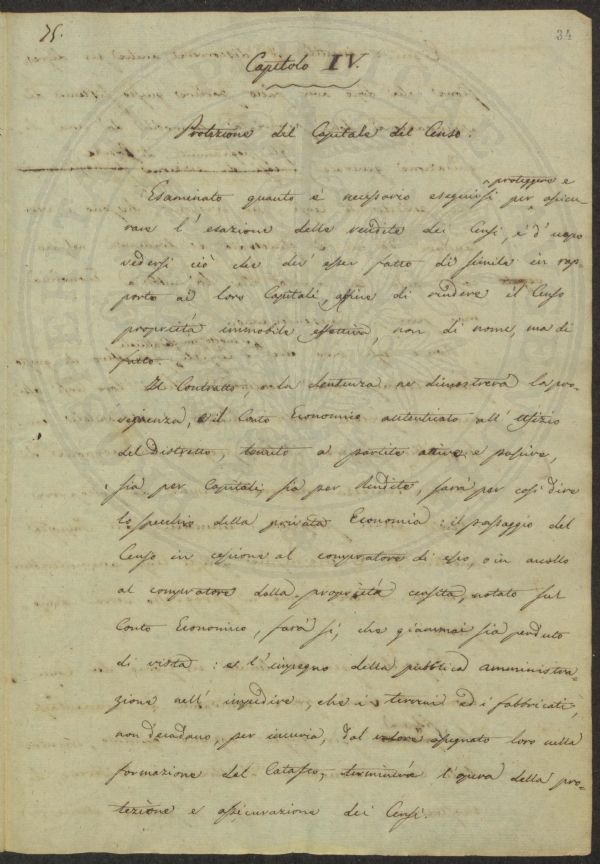 75.
34
Capitolo IV.
Protezione del Capitale del Censo.
proteggere e
Esaminato quanto è necessario eseguirsi per assicu-
rare l'esazione delle rendite dei Censi, è d'uopo
vedersi ciò che dev'esser fatto di simile in rap-
porto ai loro Capitali, affine di rendere il Censo
proprietà immobile effettiva, non di nome, ma di
fatto.
Il Contratto, o la Sentenza ne dimostrerà la pro-
venienza, e il Conto Economico autenticato all'Uffizio
del Distretto, tenuto a partite attive e passive,
sia per Capitali, sia per Rendite, sarà per così dire
lo specchio della privata Economia: il passaggio del
Censo in cessione al compratore di esso, o in accollo
al compratore della proprietà censita, notato sul
Conto Economico, farà sì, che giammai sia perduto
di vista: e l'impegno della pubblica amministra-
zione nell'impedire che i terreni ed i fabbricati,
non decadano, per incuria, dal valore assegnato loro nella
formazione del Catasto, terminerà l'opera della pro-
tezione e assicurazione dei Censi.